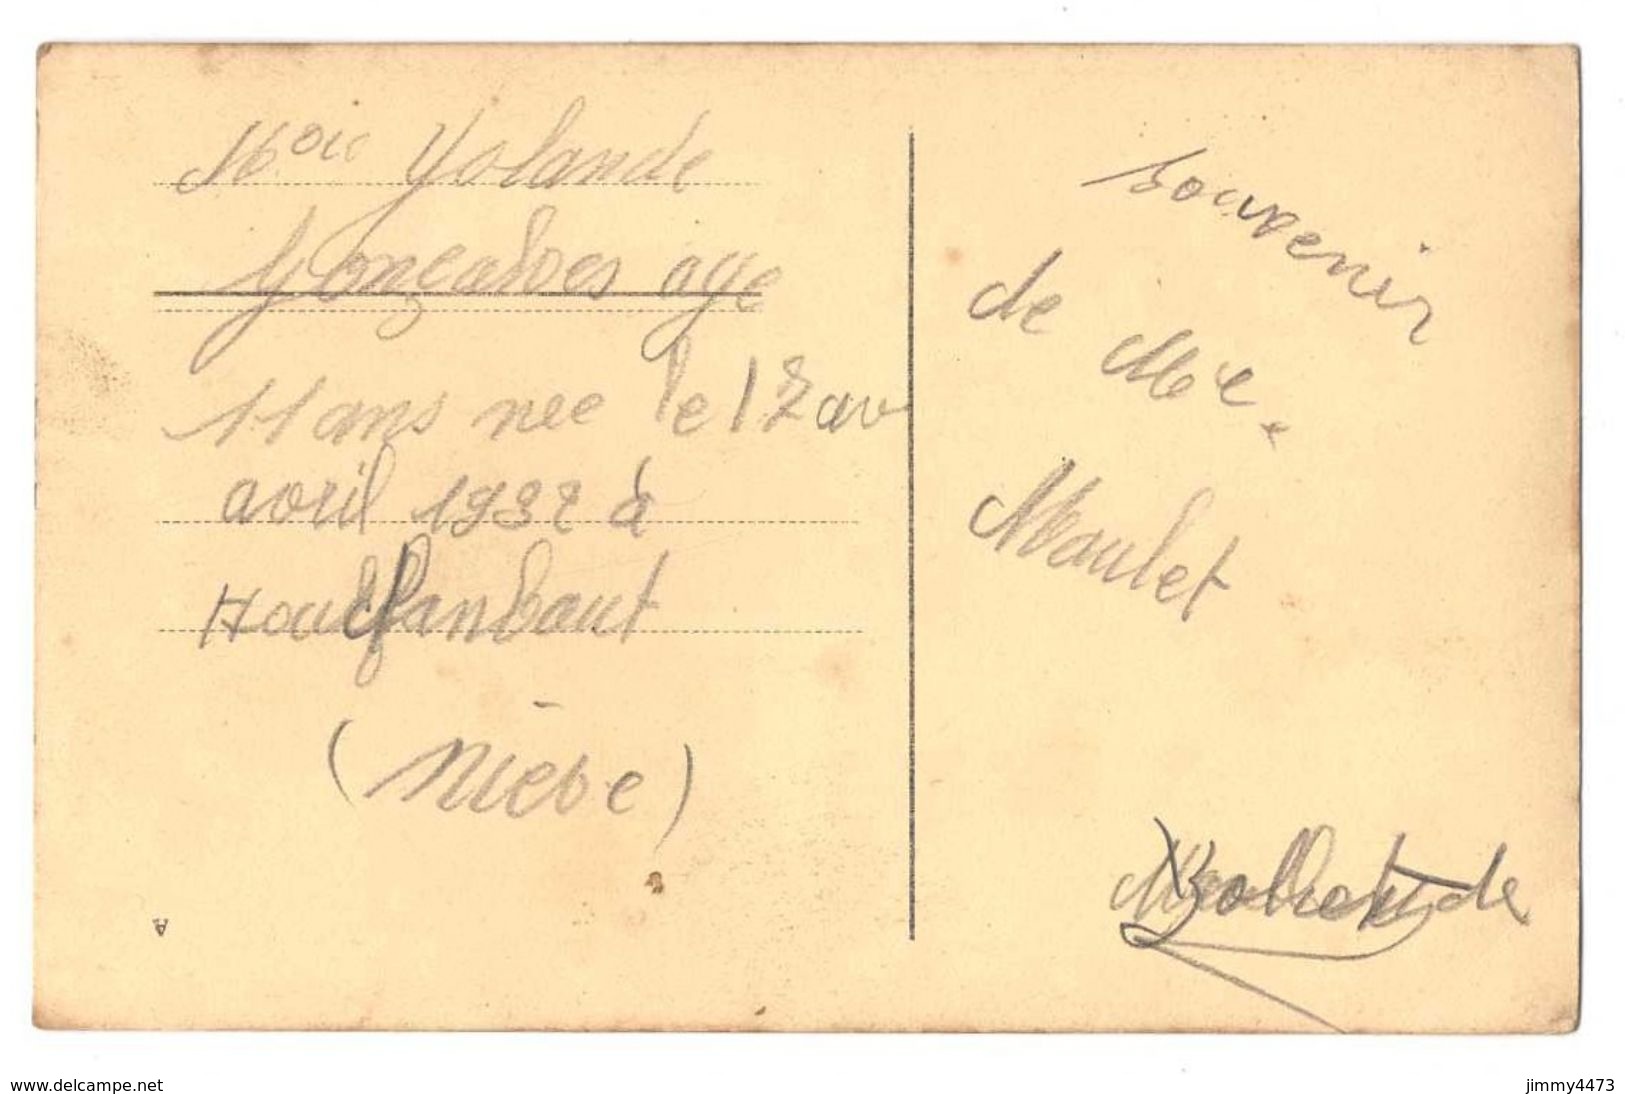 Moi Yolande
Gonzalves age
11 ans nee le 12 av
avril 1932 à
(Niève)
A
souvenir
de Me.
Maulet
www.delcampe.net
jimmy4473